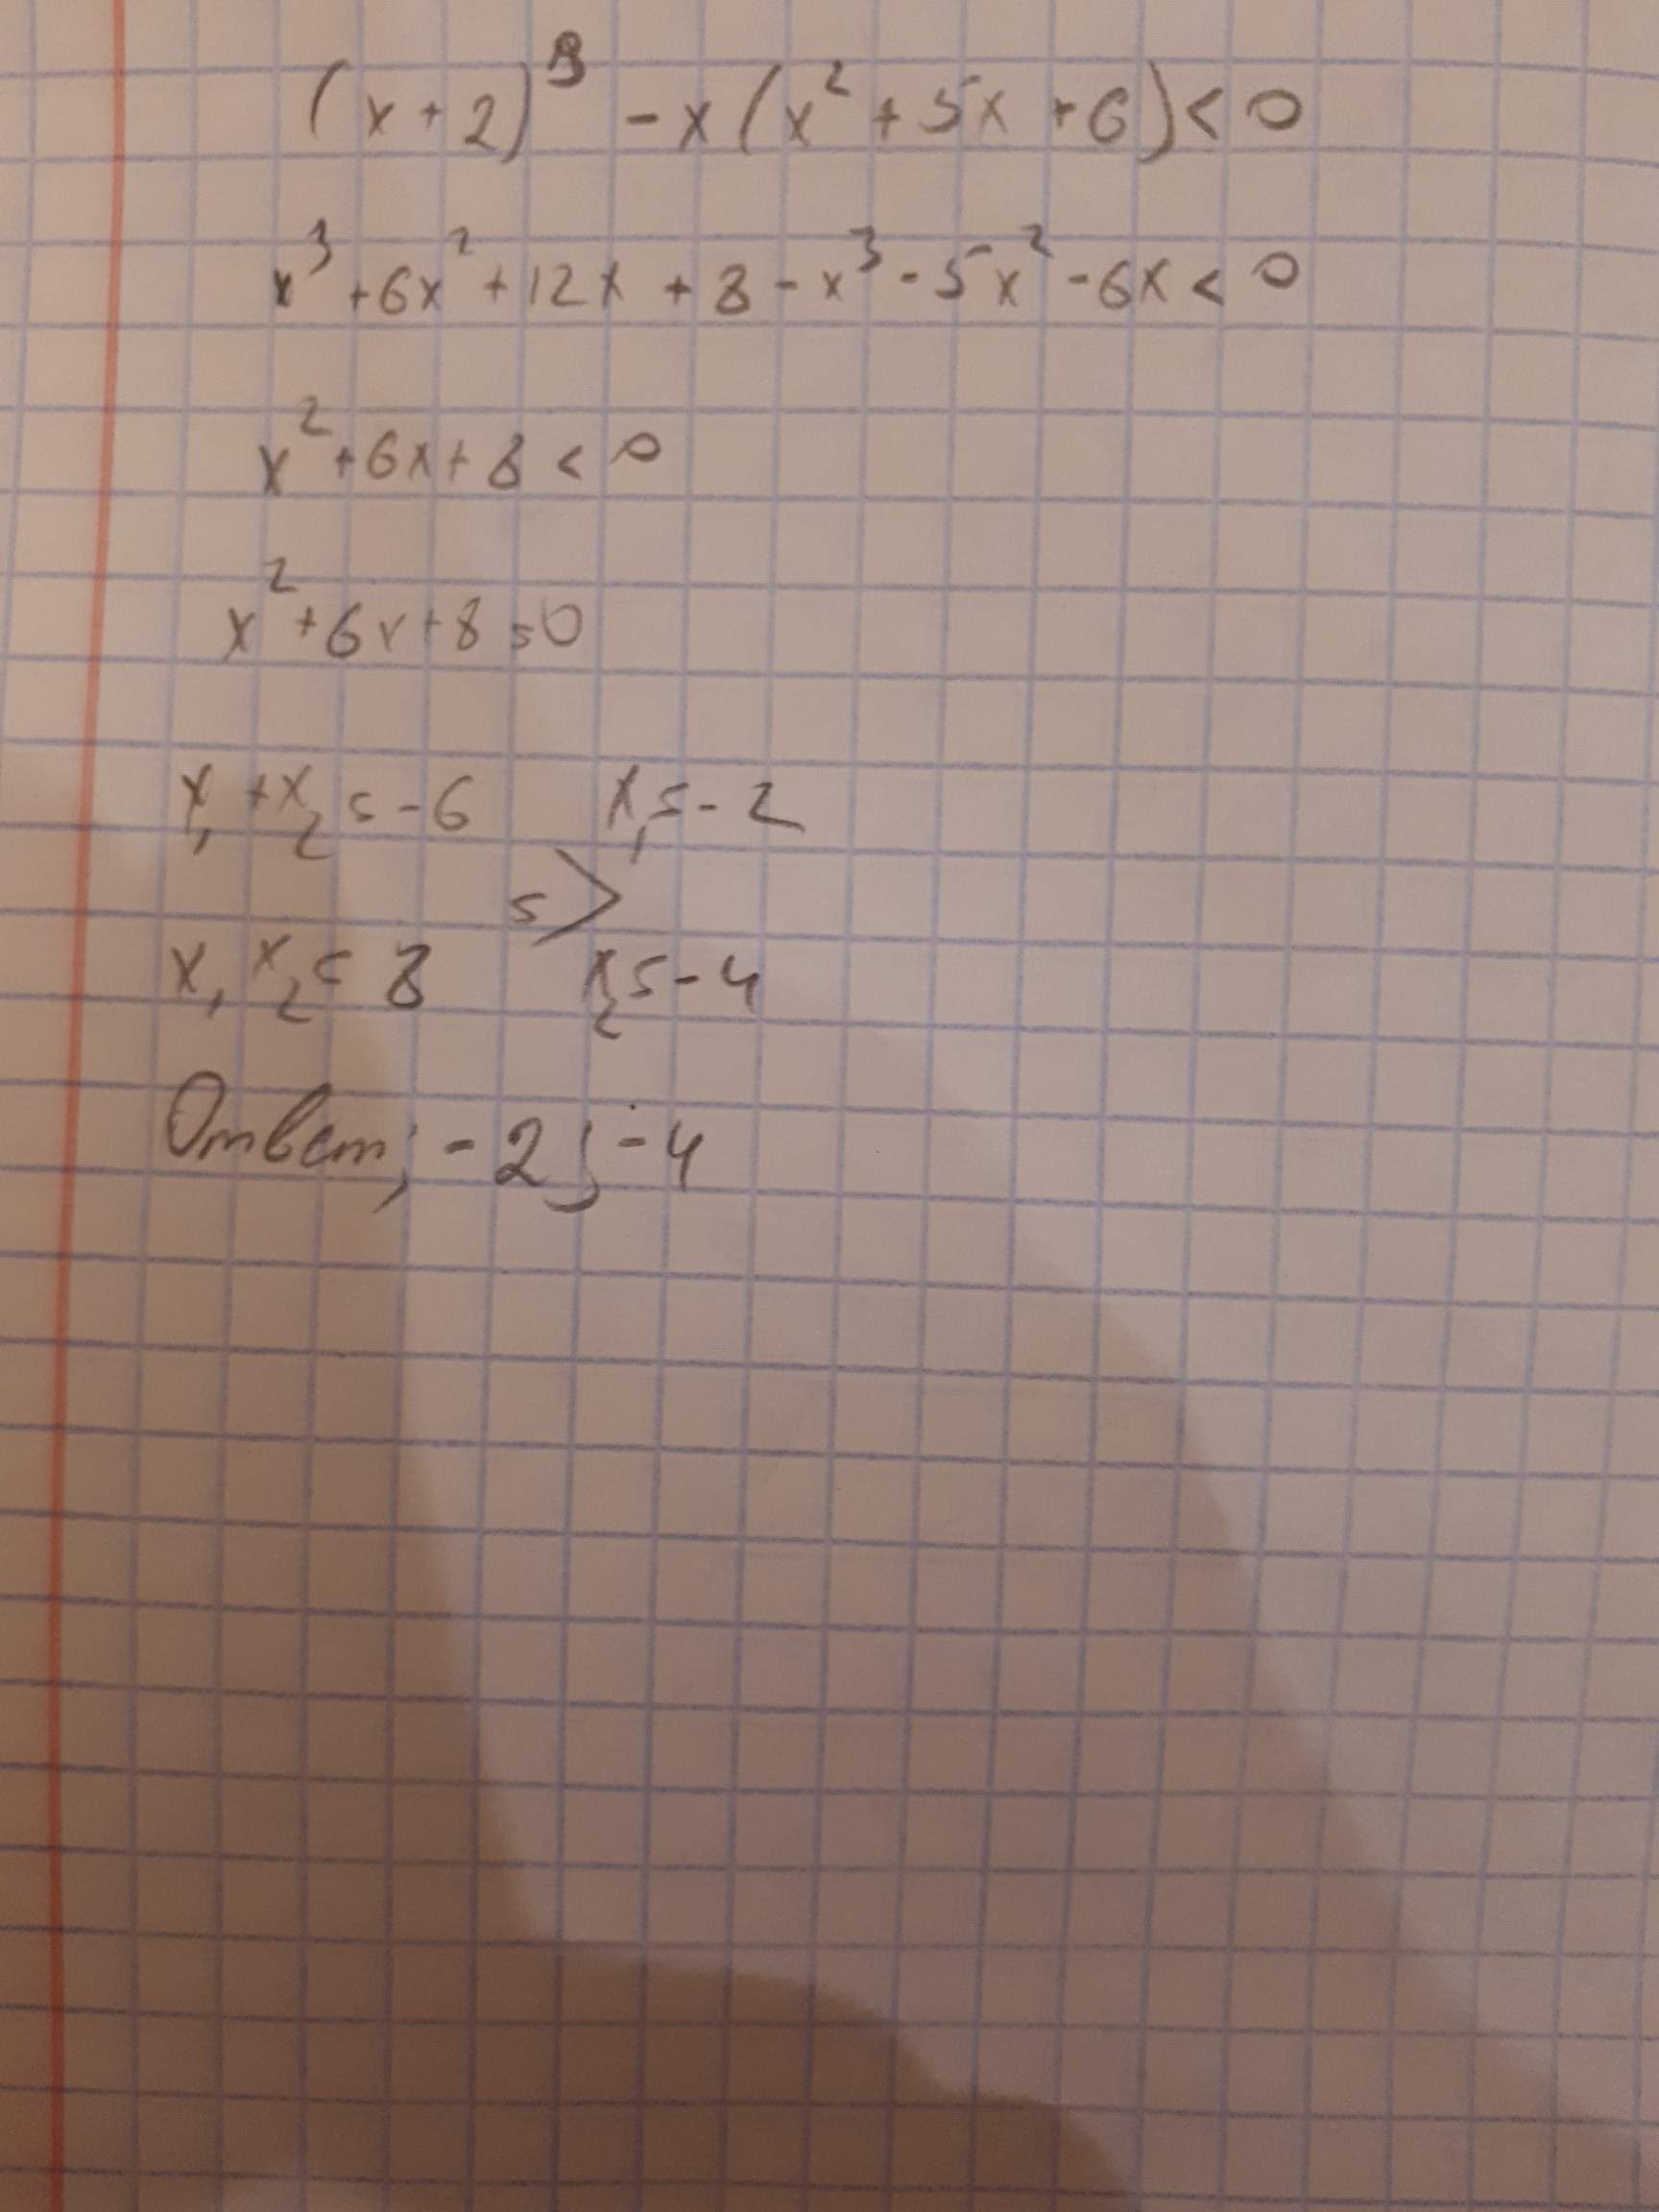 (x + 2)³ - x(x² + 5x + 6) < 0
x³ + 6x² + 12x + 8 - x³ - 5x² - 6x < 0
x² + 6x + 8 < 0
x² + 6x + 8 = 0
x₁ + x₂ = -6 x₁ = -2
=>
x₁ x₂ = 8 x₂ = -4
Ответ; -2; -4